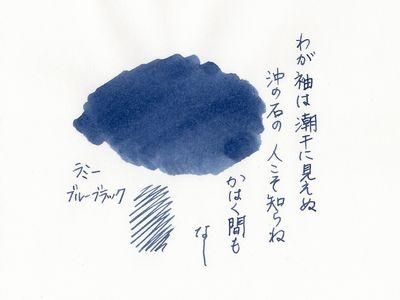 わが袖は潮干に見えぬ
沖の石の 人こそ知らね
かはく間も
なし
ラミー
ブルーブラック